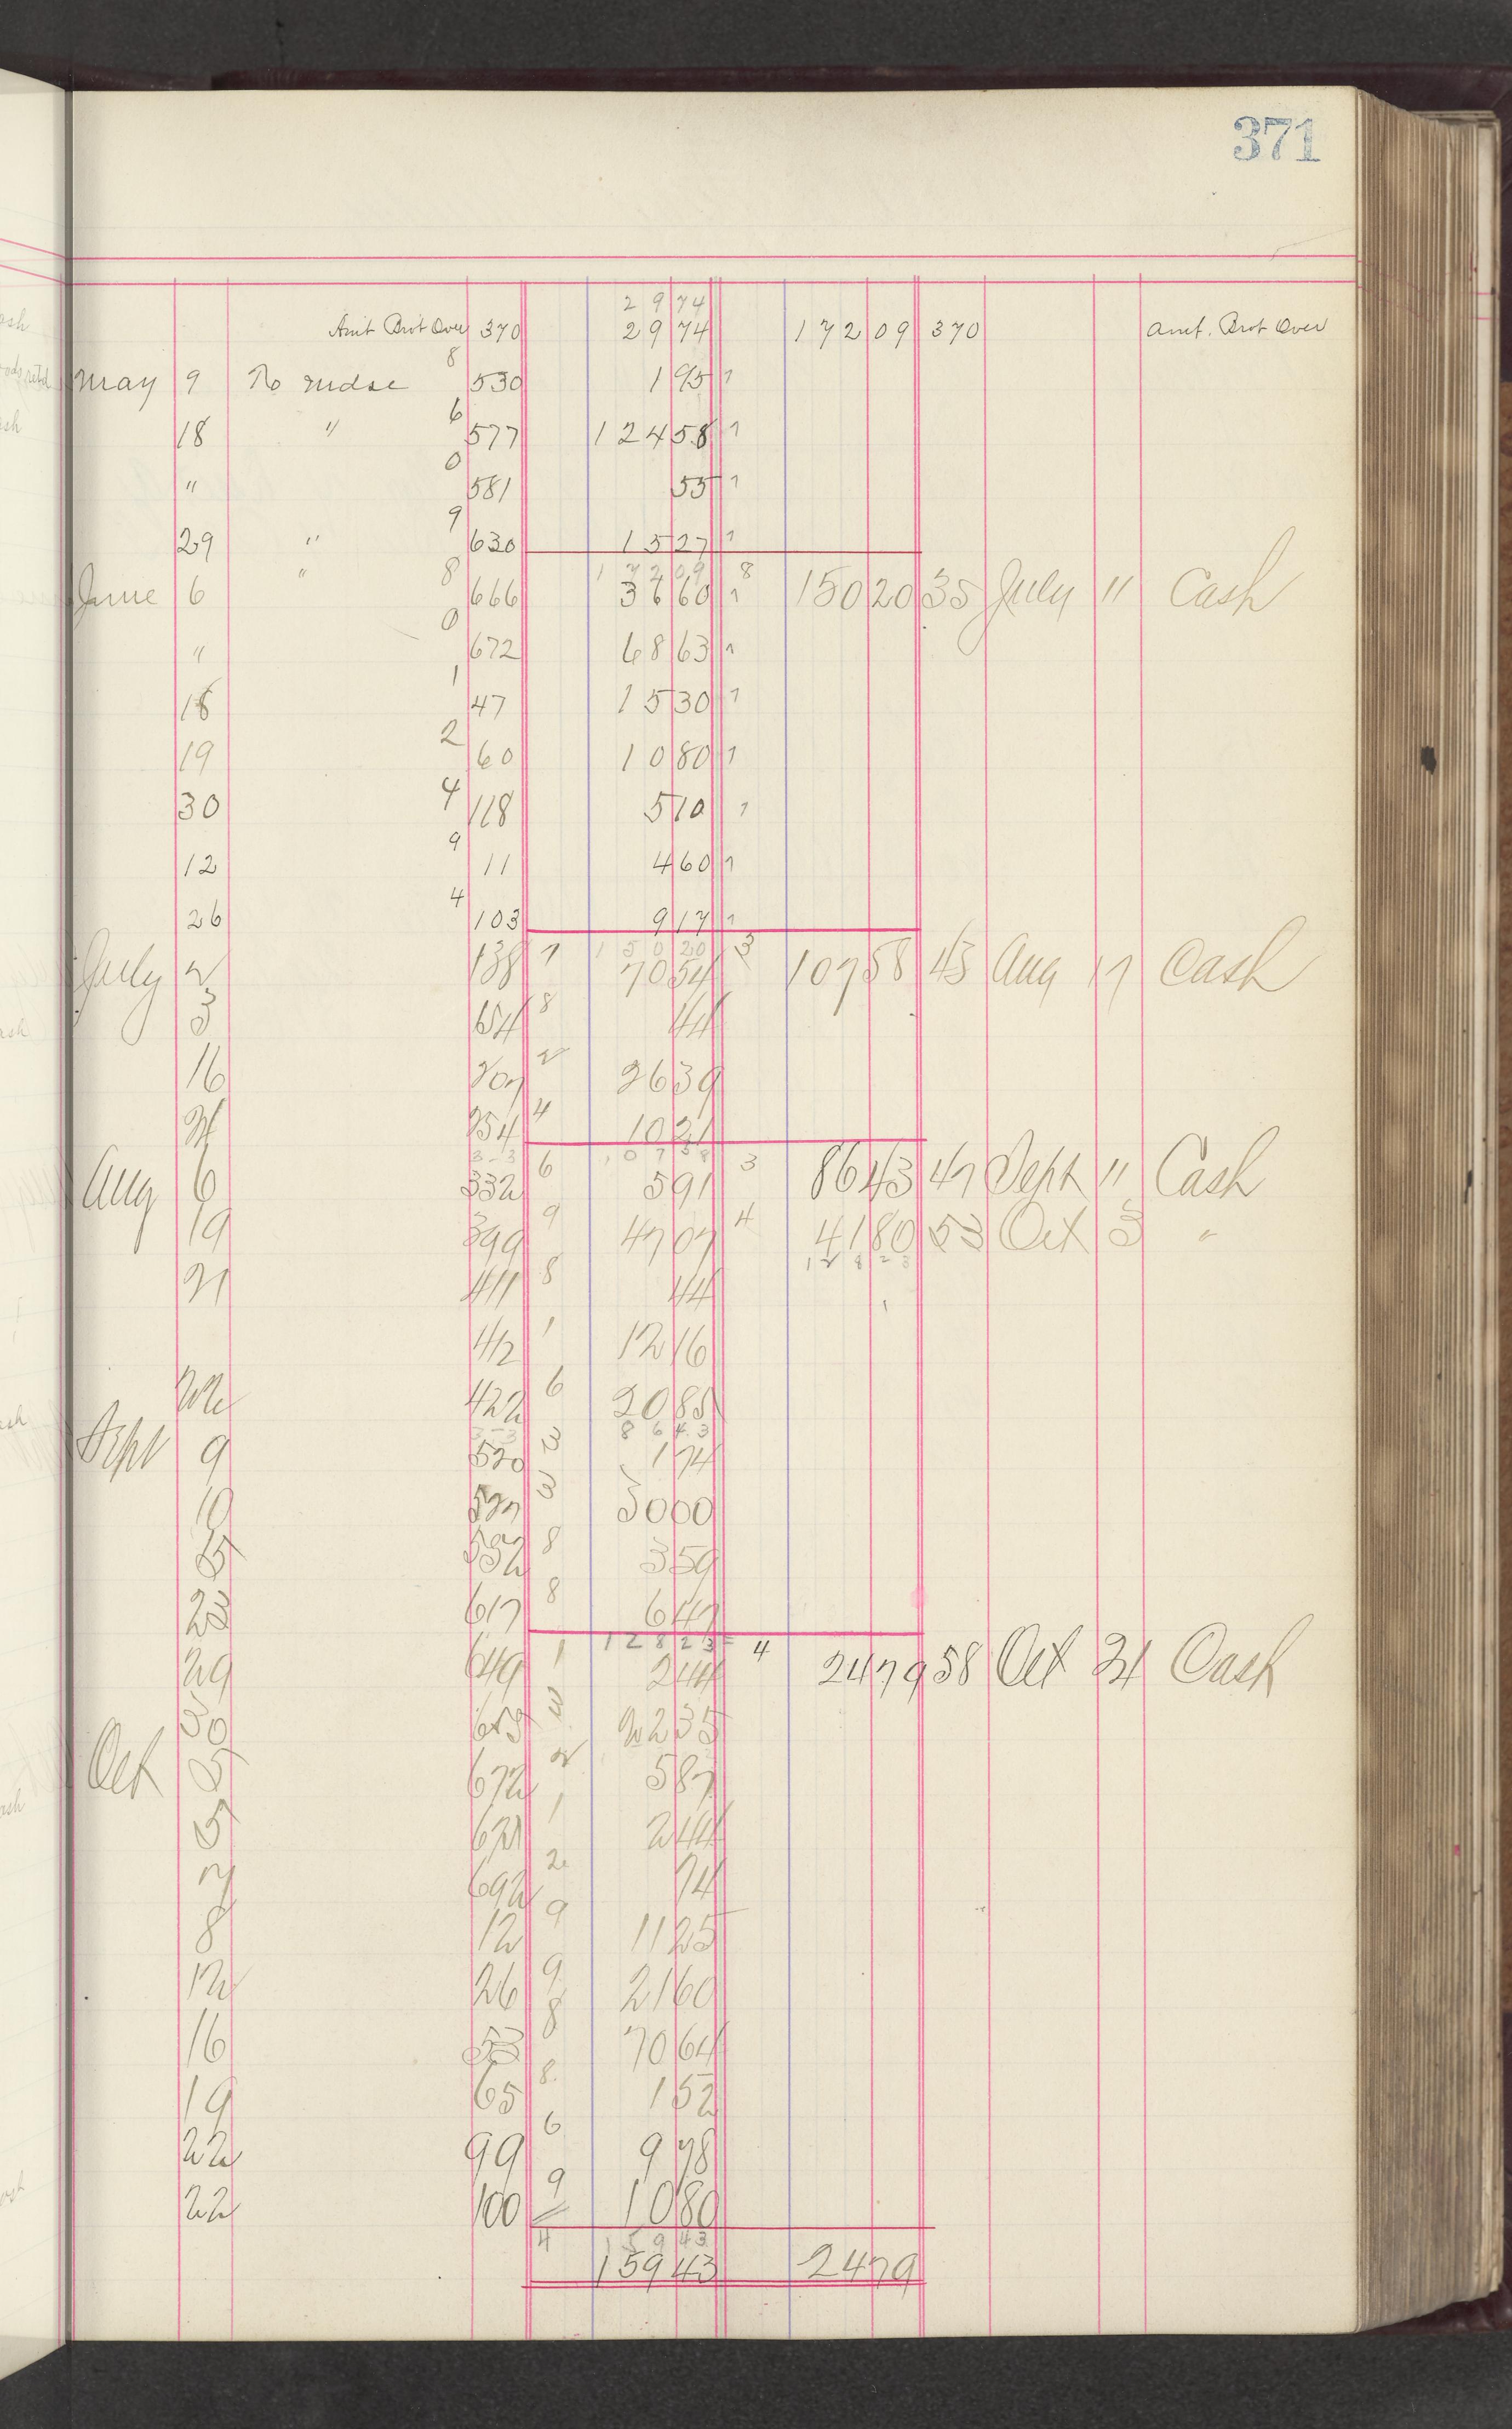 371
29 74
Amt Brot Over 370 29 74 172 09 370 Amt. Brot Over
May 9 To mdse 8 530 1 95 1
18 " 6 577 124 58 1
" 0 581 55 1
29 " 9 630 15 27 1
172 09 8
June 6 " 8 666 36 60 1 150 20 35 July 11 Cash
" 0 672 68 63 1
18 1 47 15 30 1
19 2 60 10 80 1
30 4 118 5 10 1
12 9 11 4 60 1
26 4 103 9 17 1
150 20 3
July 2 138 7 70 54 107 58 43 Aug 17 Cash
3 154 8 44
16 207 2 26 39
21 254 4 10 21
3-3 107 58 3
Aug 6 332 6 5 91 86 43 47 Sept 11 Cash
19 399 9 47 07 4 41 80 53 Oct 3 "
128 23
21 411 8 44
412 1 12 16
22 422 6 20 85
3-3 86 43
Sept 9 520 3 1 74
10 527 3 50 00
15 552 8 3 59
23 617 8 6 47
128 23 4
29 649 1 2 44 24 79 58 Oct 21 Cash
30 653 3 22 35
Oct 5 672 2 5 87
5 671 1 2 44
7 692 2 74
8 12 9 11 25
12 26 9 21 60
16 53 8 70 64
19 65 8 1 52
22 99 6 9 78
22 100 9 10 80
4 159 43
159 43 24 79